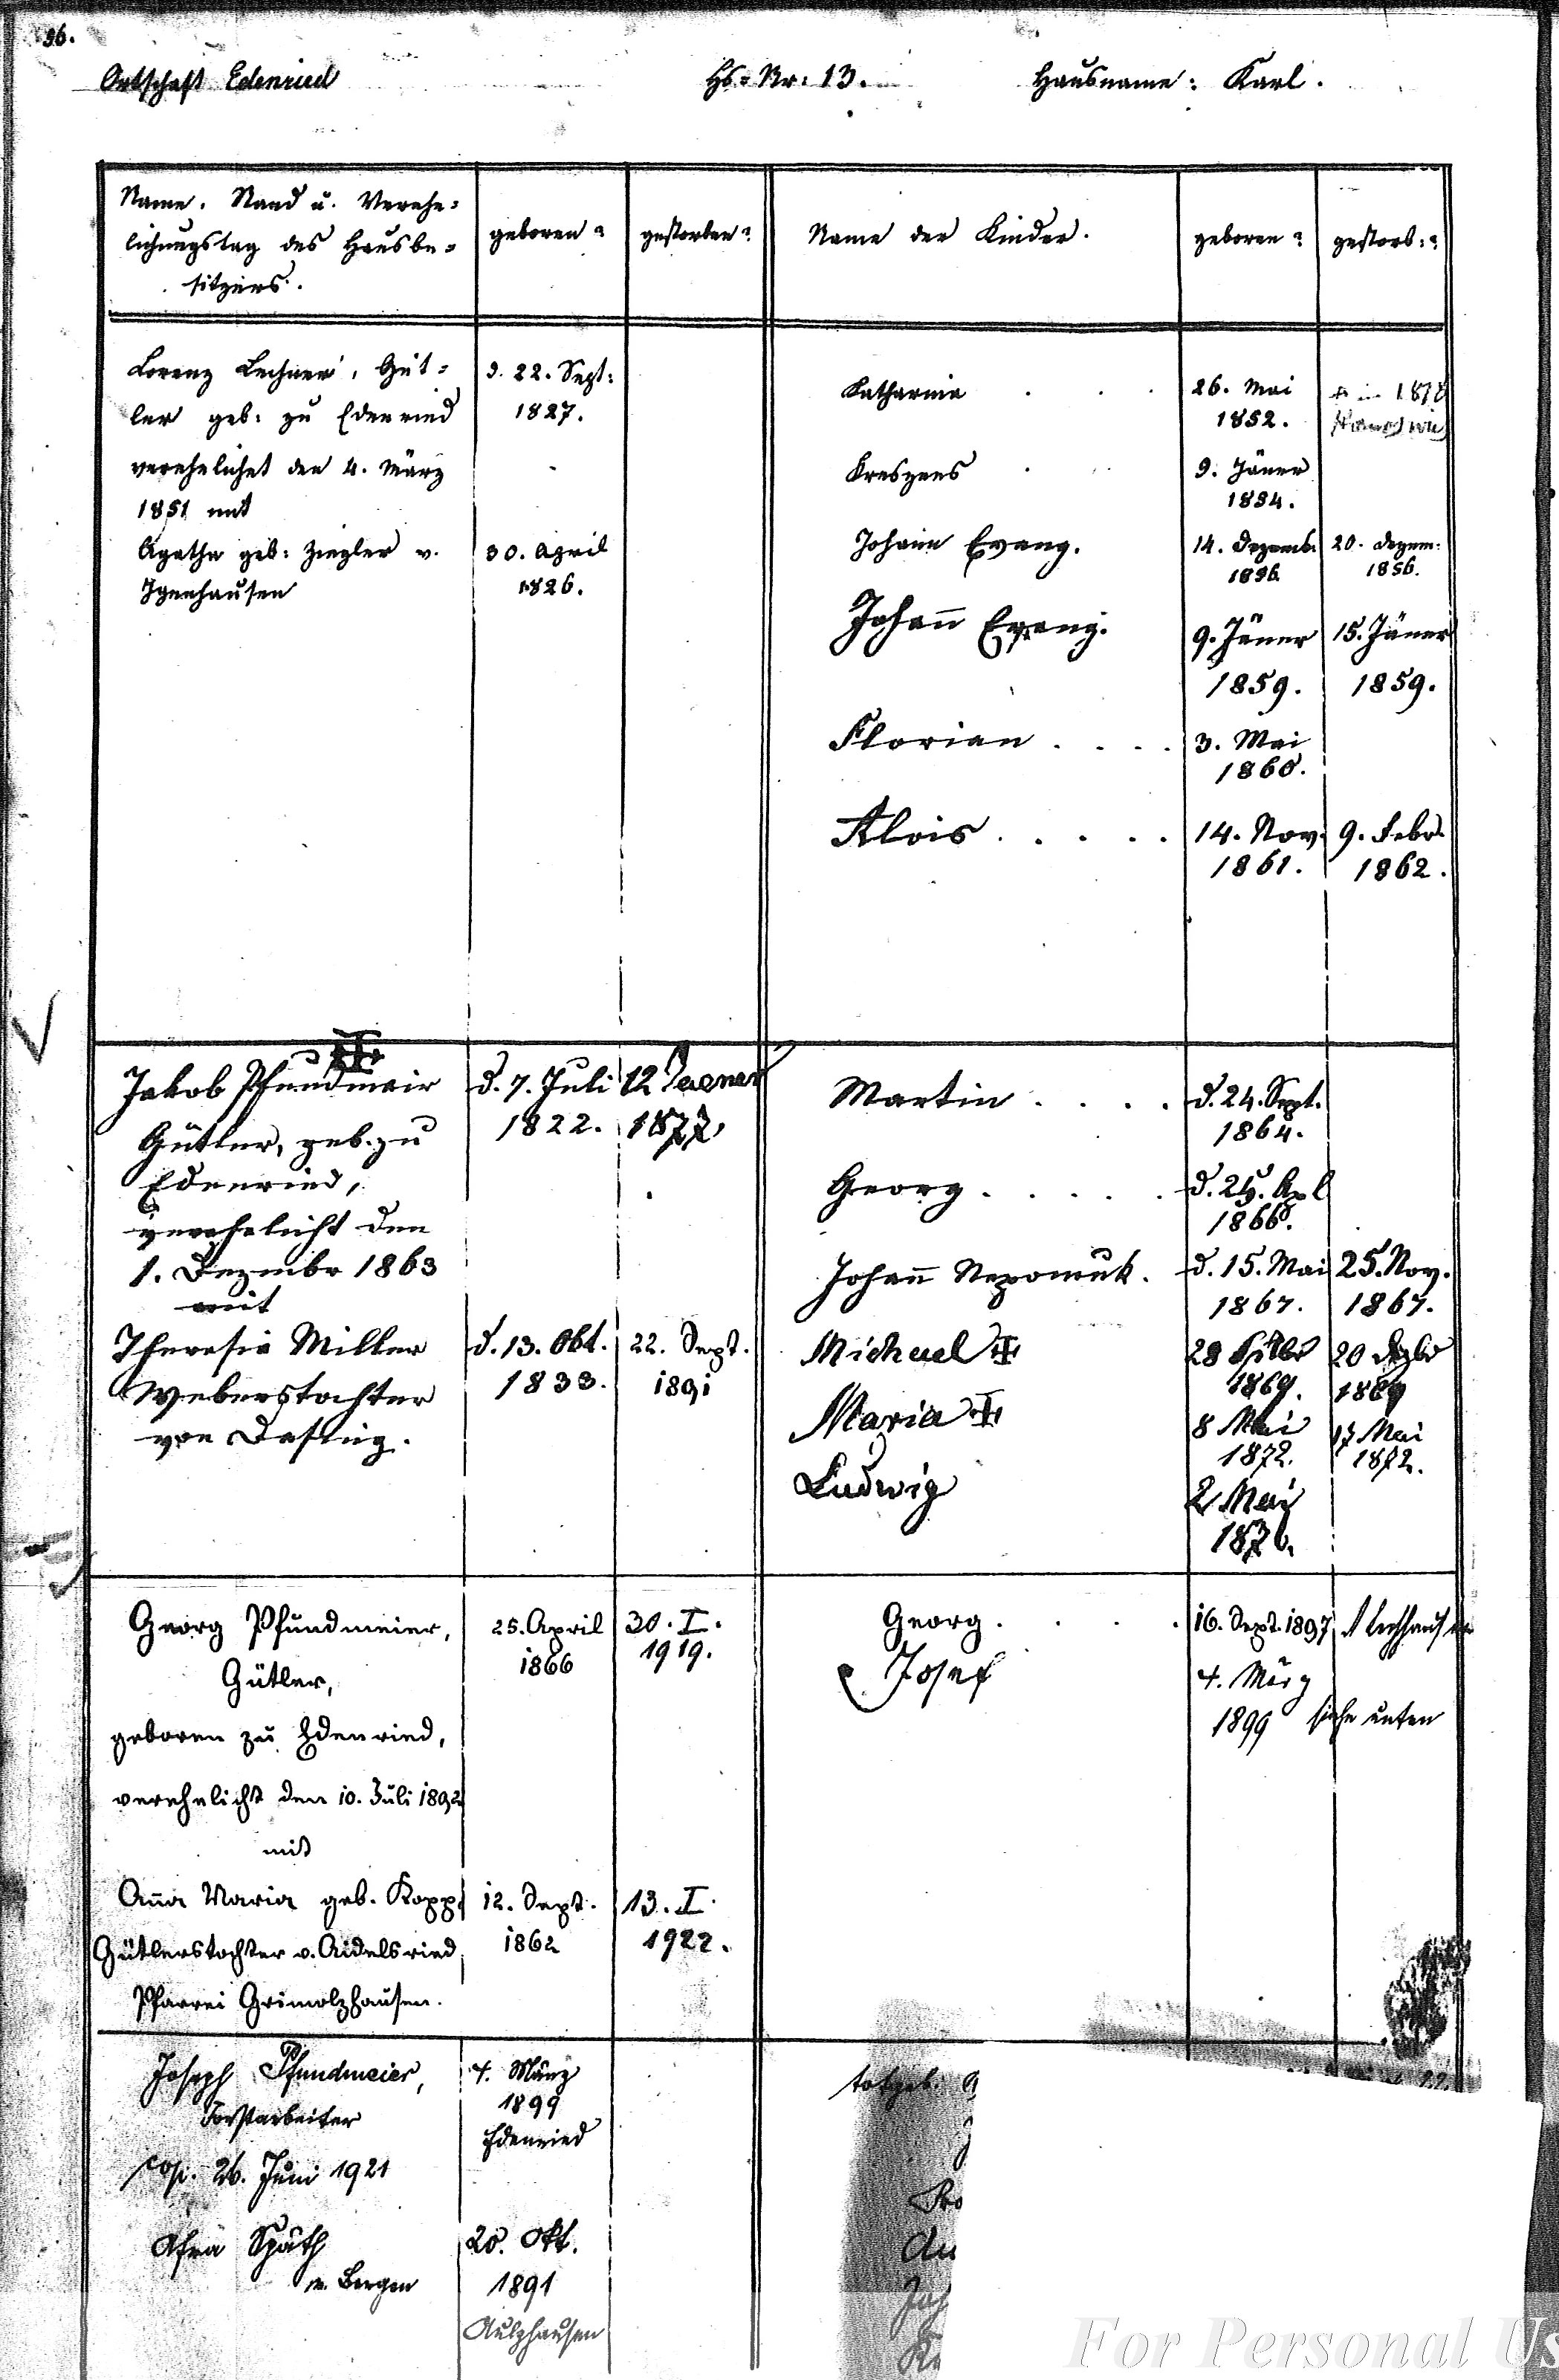 96.
Ortschaft Edenried Hs. Nr: 13. Hausname: Karl.
Name, Stand u. Verehe=
lichungstag des Hausbe=
sitzers.
geboren? gestorben? Name der Kinder. geboren? gestorb:?
Lorenz Lechner, Güt=
ler geb: zu Edenried
verehelichet den 4. März
1851 mit
d. 22. Sept:
1827.
Agatha geb: Ziegler v.
Igenhausen
30. April
1826.
Katharina . . . 26. Mai
1852.
1878
Kreszens . . 9. Jäner
1854.
Johann Evang. 14. Dezemb. 20. Dezem:
1856 1856.
Johann Evang. 9. Jäner 15. Jäner
1859. 1859.
Florian . . . . 3. Mai
1860.
Alois . . . . . 14. Nov. 9. Febr.
1861. 1862.
Jakob Pfundmair
Gütler, geb. zu
Edenried,
verehelicht den
1. Dezembr 1863
mit
d. 7. Juli 12 Jaener
1822. 1877.
Theresia Miller
Weberstochter
von Dasing.
d. 13. Okt. 22. Sept.
1833. 1891
Martin . . . . d. 24. Sept.
1864.
Georg . . . . . d. 25. Apl
1866.
Johann Nepomuk. d. 15. Mai 25. Nov.
1867. 1867.
Michael 28 20 Dezbr
1869. 1869
Maria 8 Mai 17 Mai
1872. 1872.
Ludwig 2 Mai
1876.
Georg Pfundmeier,
Gütler,
geboren zu Edenried,
verehelicht den 10. Juli 1892
mit
25. April 30. I.
1866 1919.
Anna Maria geb. Kopp,
Gütlerstochter v. Aidelsried
Pfarrei Grimolzhausen.
12. Sept. 13. I.
1862 1922.
Georg . . . . 16. Sept. 1897
Josef 4. März
1899 siehe unten
Joseph Pfundmeier,
Forstarbeiter
cop. 26. Juni 1921
4. März
1899
Edenried
Afra Späth
v. Bergen
20. Okt.
1891
Aulzhausen
totgeb.
For Personal Us